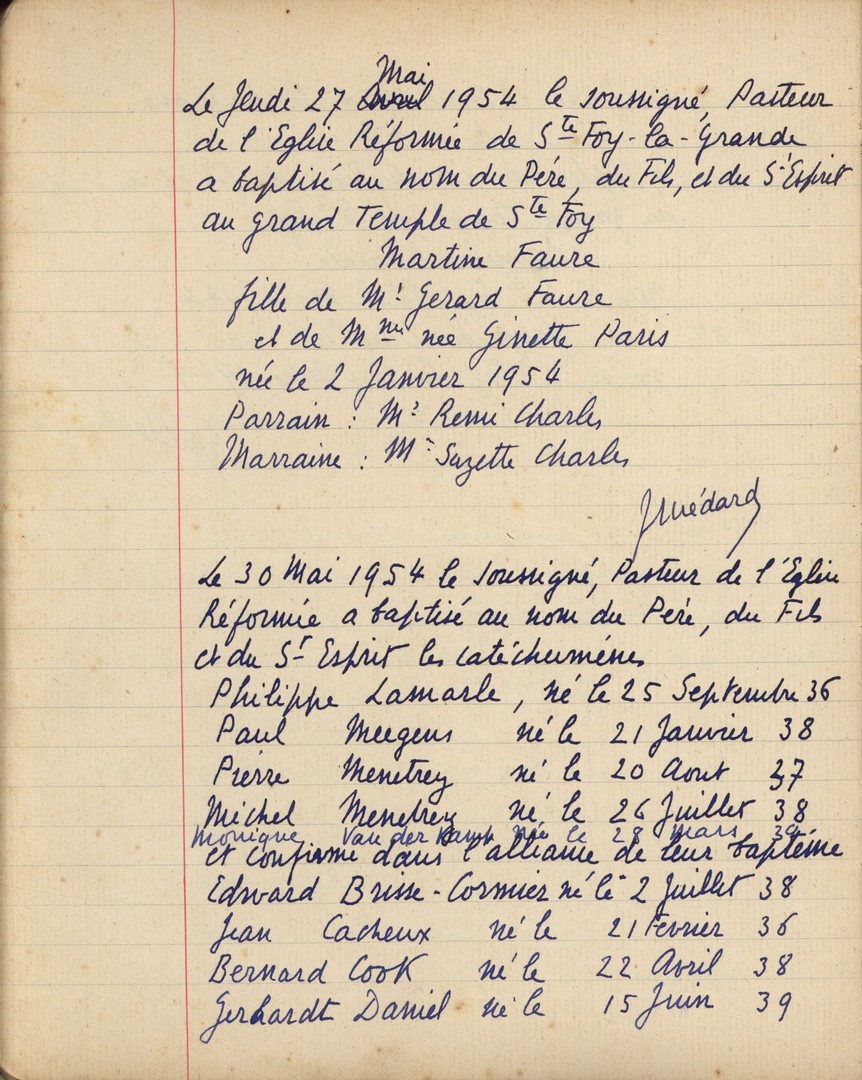 Mai
Le Jeudi 27 Avril 1954 le soussigné, Pasteur
de l'Eglise Réformée de Ste Foy-la-Grande
a baptisé au nom du Père, du Fils, et du St Esprit
au grand Temple de Ste Foy
Martine Faure
fille de Mr Gerard Faure
et de Mme née Ginette Paris
née le 2 Janvier 1954
Parrain : Mr Remi Charles
Marraine : Me Suzette Charles
J Médard
Le 30 Mai 1954 le soussigné, Pasteur de l'Eglise
Réformée a baptisé au nom du Père, du Fils
et du St Esprit les catéchumènes
Philippe Lamarle, né le 25 Septembre 36
Paul Meegens né le 21 Janvier 38
Pierre Menetrey né le 20 Aout 37
Michel Menetrey né le 26 Juillet 38
Monique Van der née le 28 Mars 39
et confirmé dans l'alliance de leur baptême
Edward Brisse-Cormier né le 2 Juillet 38
Jean Cacheux né le 21 Fevrier 36
Bernard Cook né le 22 Avril 38
Gerhardt Daniel né le 15 Juin 39